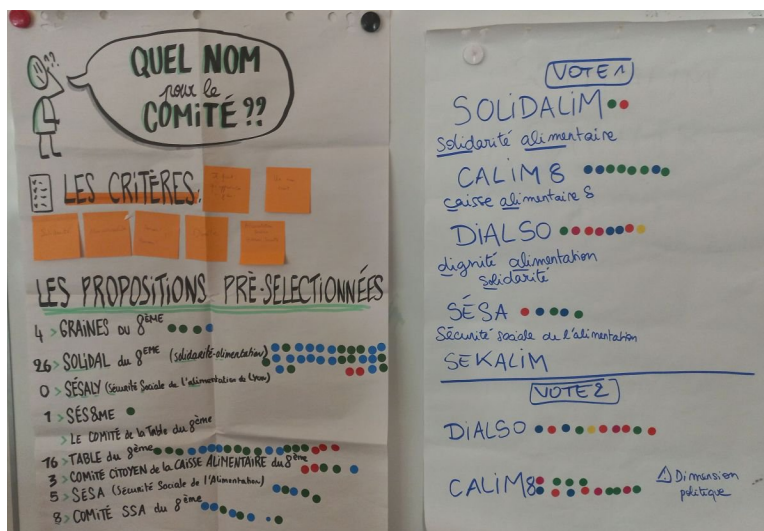 ??
QUEL NOM
pour le
COMITÉ ??
LES CRITÈRES:
LES PROPOSITIONS PRÉ-SELECTIONNÉES
4 > GRAINES DU 8ÈME
26 > SOLIDAL du 8EME (solidarité-alimentation)
0 > SÉSALY (Sécurité Sociale de l'alimentation de Lyon)
1 > SÉS8ME
> LE COMITÉ de la Table du 8ème
16 > TABLE du 8ème
3 > COMITÉ CITOYEN de la CAISSE ALIMENTAIRE du 8ème
5 > SÉSA (Sécurité Sociale de l'Alimentation)
8 > COMITÉ SSA du 8ème
VOTE 1
SOLIDALIM
Solidarité alimentaire
CALIM 8
caisse alimentaire 8
DIALSO
dignité alimentation
solidarité
SÉSA
Sécurité sociale de l'alimentation
SEKALIM
VOTE 2
DIALSO
CALIM8
Dimension
politique